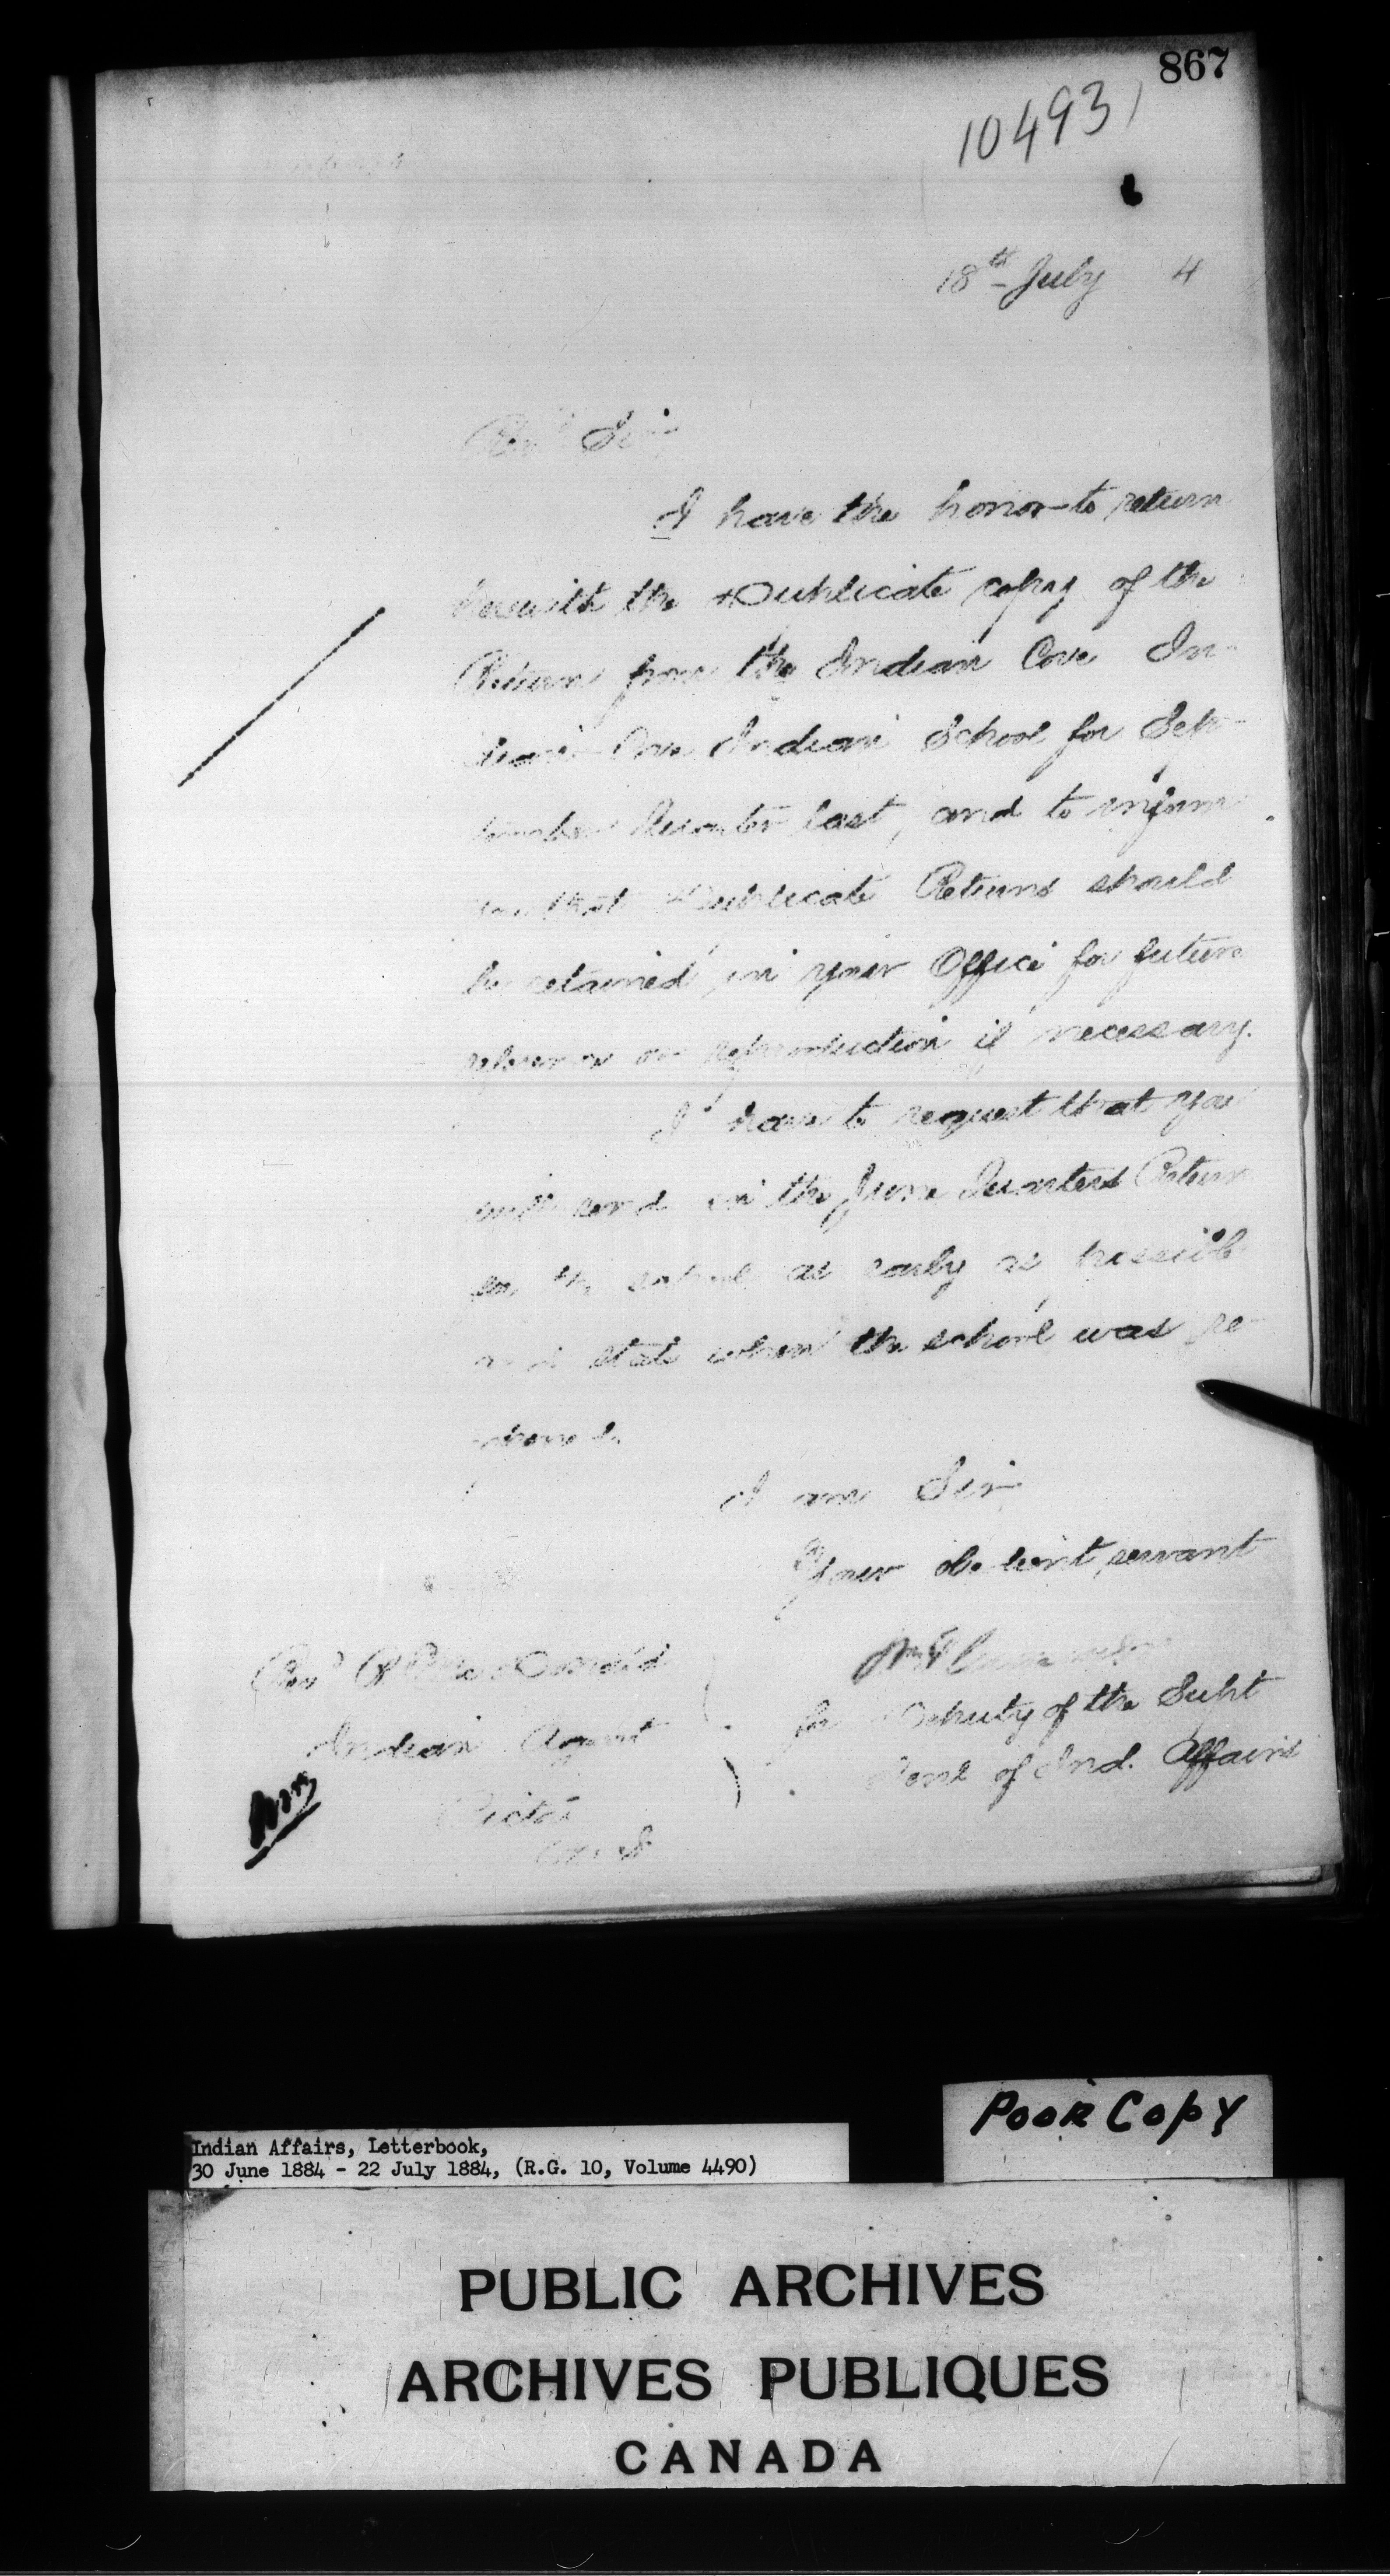 867
10493
18th July 4
Revd Sir
I have the honor to return
herewith the Duplicate copy of the
Return from the Indian Cove In-
dian Cove Indian School for Sep-
tember Quarter last, and to inform
you that Duplicate Returns should
be retained in your Office for future
reference or reproduction if necessary.
I have to request that you
will send in the June Quarters Return
as early as possible
and state when the school was re-
opened.
I am Sir
Your obedient servant
Revd R. MacDonald
for Deputy of the Supt
Indian Agent
Genl of Ind. Affairs
Pictou
N.S
Poor Copy
Indian Affairs, Letterbook,
30 June 1884 - 22 July 1884, (R.G. 10, Volume 4490)
PUBLIC ARCHIVES
ARCHIVES PUBLIQUES
CANADA